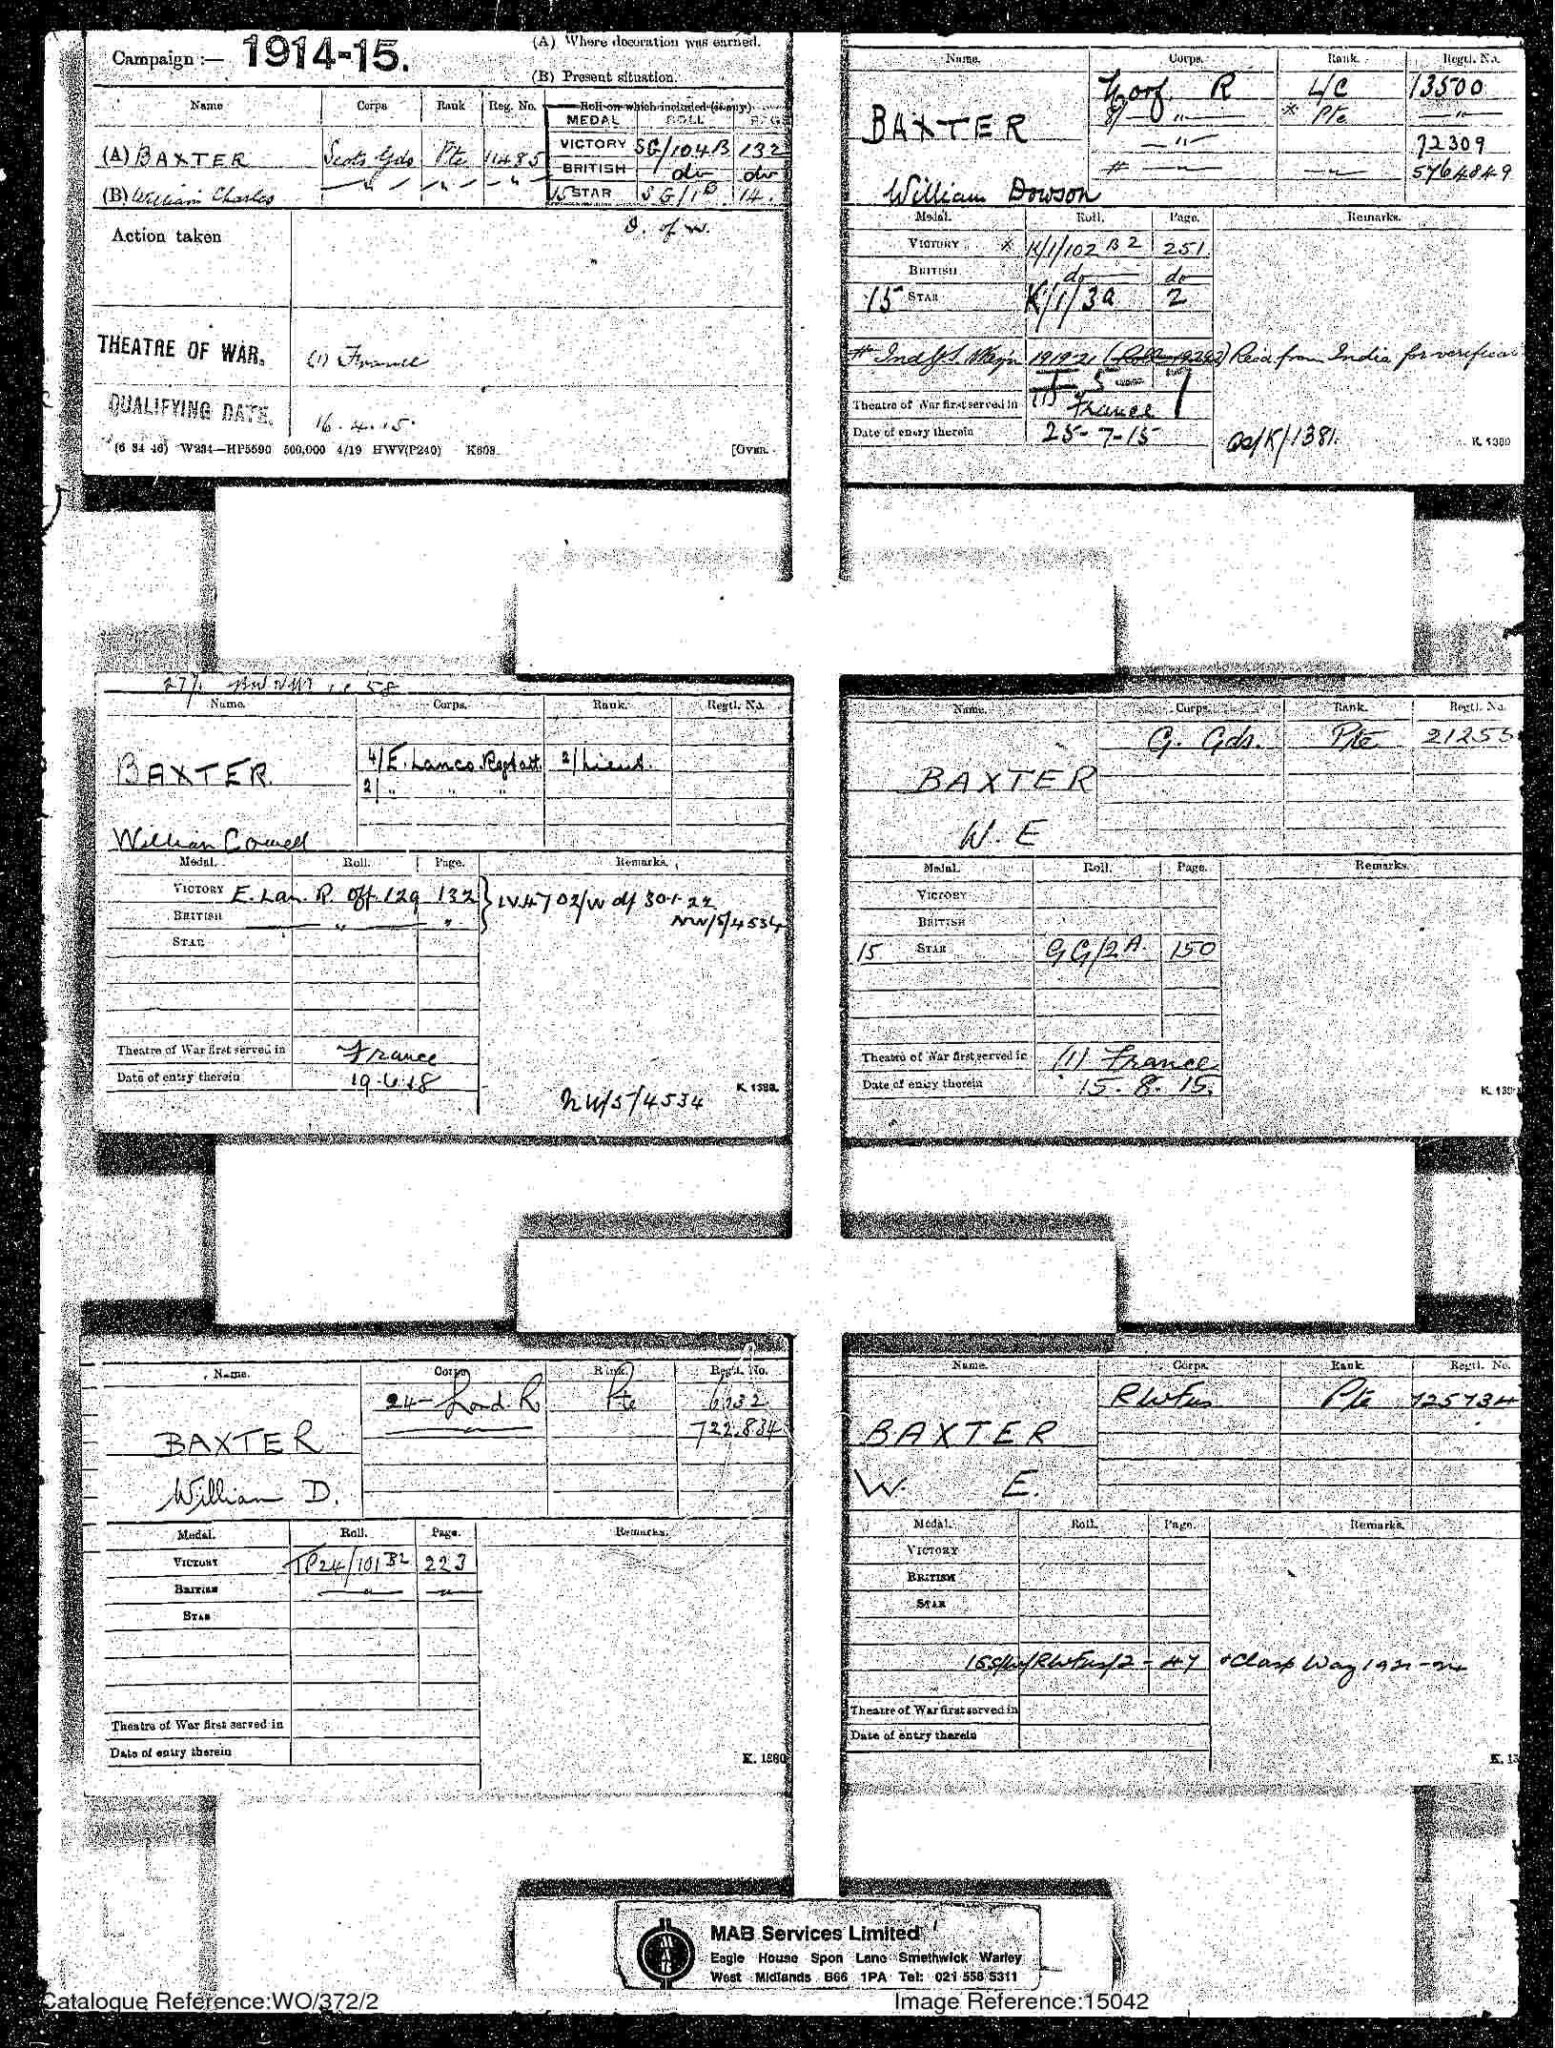 Campaign :— 1914-15.
(A) Where decoration was earned.
(B) Present situation.
Name Corps Rank Reg. No. Roll on which included (if any)
MEDAL ROLL PAGE
(A) BAXTER Scots Gds Pte 11485 VICTORY SG/104B 132
BRITISH do do
(B) William Charles — " — — " — — " — 15 STAR SG/1B 14.
Action taken
D. of W.
THEATRE OF WAR. (1) France
QUALIFYING DATE. 16.4.15.
(6 34 46) W234—HP5590 500,000 4/19 HWV(P240) K608. [Over.
Name. Corps. Rank. Regtl. No.
BAXTER Norf R L/C 13500
8/ — " — * Pte — " —
— " — 72309
# — " — — " — 5764849
William Dowson
Medal. Roll. Page. Remarks.
VICTORY * K/1/102 B2 251
BRITISH do do
15 STAR K/1/3a 2
# Ind G.S. 1919 21 Recd from India for verificat
Theatre of War first served in France
Date of entry therein 25-7-15
/K/1381. K. 1380
58
Name. Corps. Rank. Regtl. No.
BAXTER. 4/E. Lancs. Regt att 2/Lieut.
2/ " " "
William Cowell
Medal. Roll. Page. Remarks.
VICTORY E. Lan. R. Off 129 132 } IV4702/W df 30.1.22
BRITISH — " — " NW/5/4534
STAR
Theatre of War first served in France
Date of entry therein 19.6.18
NW/5/4534
K. 1380.
Name. Corps. Rank. Regtl. No.
G. Gds. Pte 21255
BAXTER
W. E
Medal. Roll. Page. Remarks.
VICTORY
BRITISH
15 STAR GG/2A 150
Theatre of War first served in (1) France
Date of entry therein 15. 8. 15.
K. 1380
Name. Corps Rank. Regtl. No.
24 - Lond. R Pte 6332
— " — 722.834
BAXTER
William D.
Medal. Roll. Page. Remarks.
VICTORY TP24/101B2 223
BRITISH — " — — " —
STAR
Theatre of War first served in
Date of entry therein
K. 1380
Name. Corps. Rank Regtl. No.
R W Fus Pte 725734
BAXTER
W. E.
Medal. Roll. Page. Remarks.
VICTORY
BRITISH
STAR
/RWFus/2 - 47 + Clasp 1921-24
Theatre of War first served in
Date of entry therein
K. 13
MAB
MAB Services Limited
Eagle House Spon Lane Smethwick Warley
West Midlands B66 1PA Tel: 021 558 5311
Catalogue Reference:WO/372/2
Image Reference:15042